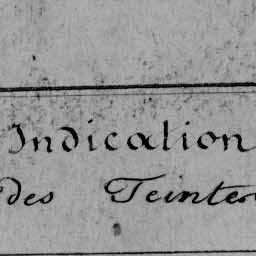 Indication
des Teintes